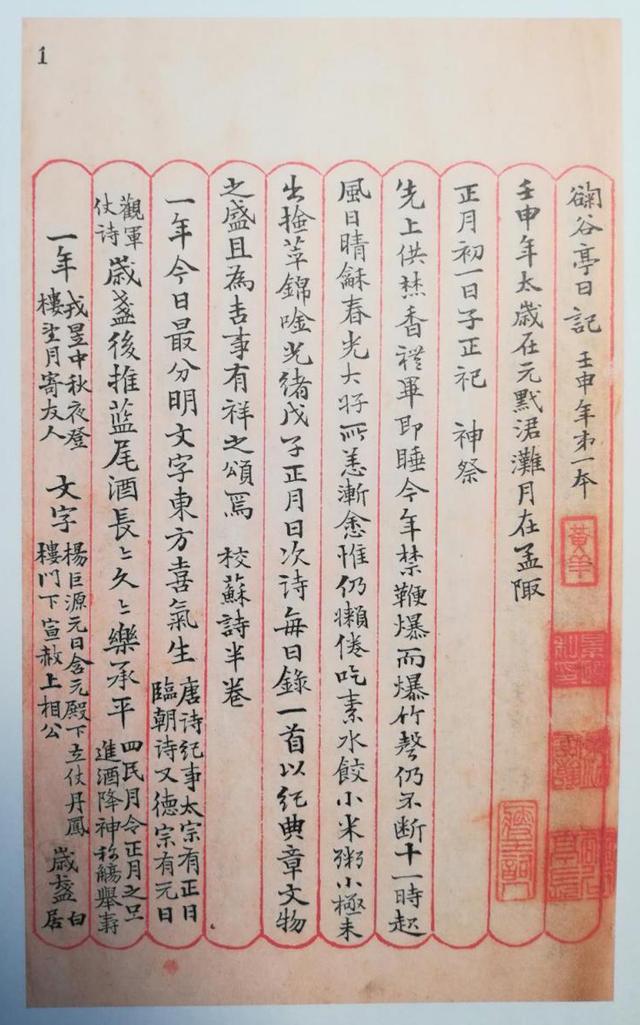 1
籲谷亭日記 壬申年第一本
壬申年太歲在元黓涒灘月在孟陬
正月初一日子正祀 神祭
先上供焚香禮畢即睡今年禁鞭爆而爆竹聲仍不斷十一時起
風日晴龢春光大好所恙漸愈惟仍懶倦吃素水餃小米粥小極未
出撿萃錦唫光緒戊子正月日次詩每日錄一首以紀典章文物
之盛且為吉事有祥之頌焉 校蘇詩半卷
一年今日最分明文字東方喜氣生 唐詩紀事太宗有正日
臨朝詩又德宗有元日
觀軍
仗詩 歲盞後推藍尾酒長〻久〻樂承平 四民月令正月之旦
進酒降神称觴舉壽
一年 戎昱中秋夜登
樓望月寄友人 文字 楊巨源元日含元殿下立仗丹鳳
樓門下宣赦上相公 歲盞 白
居
黃羊